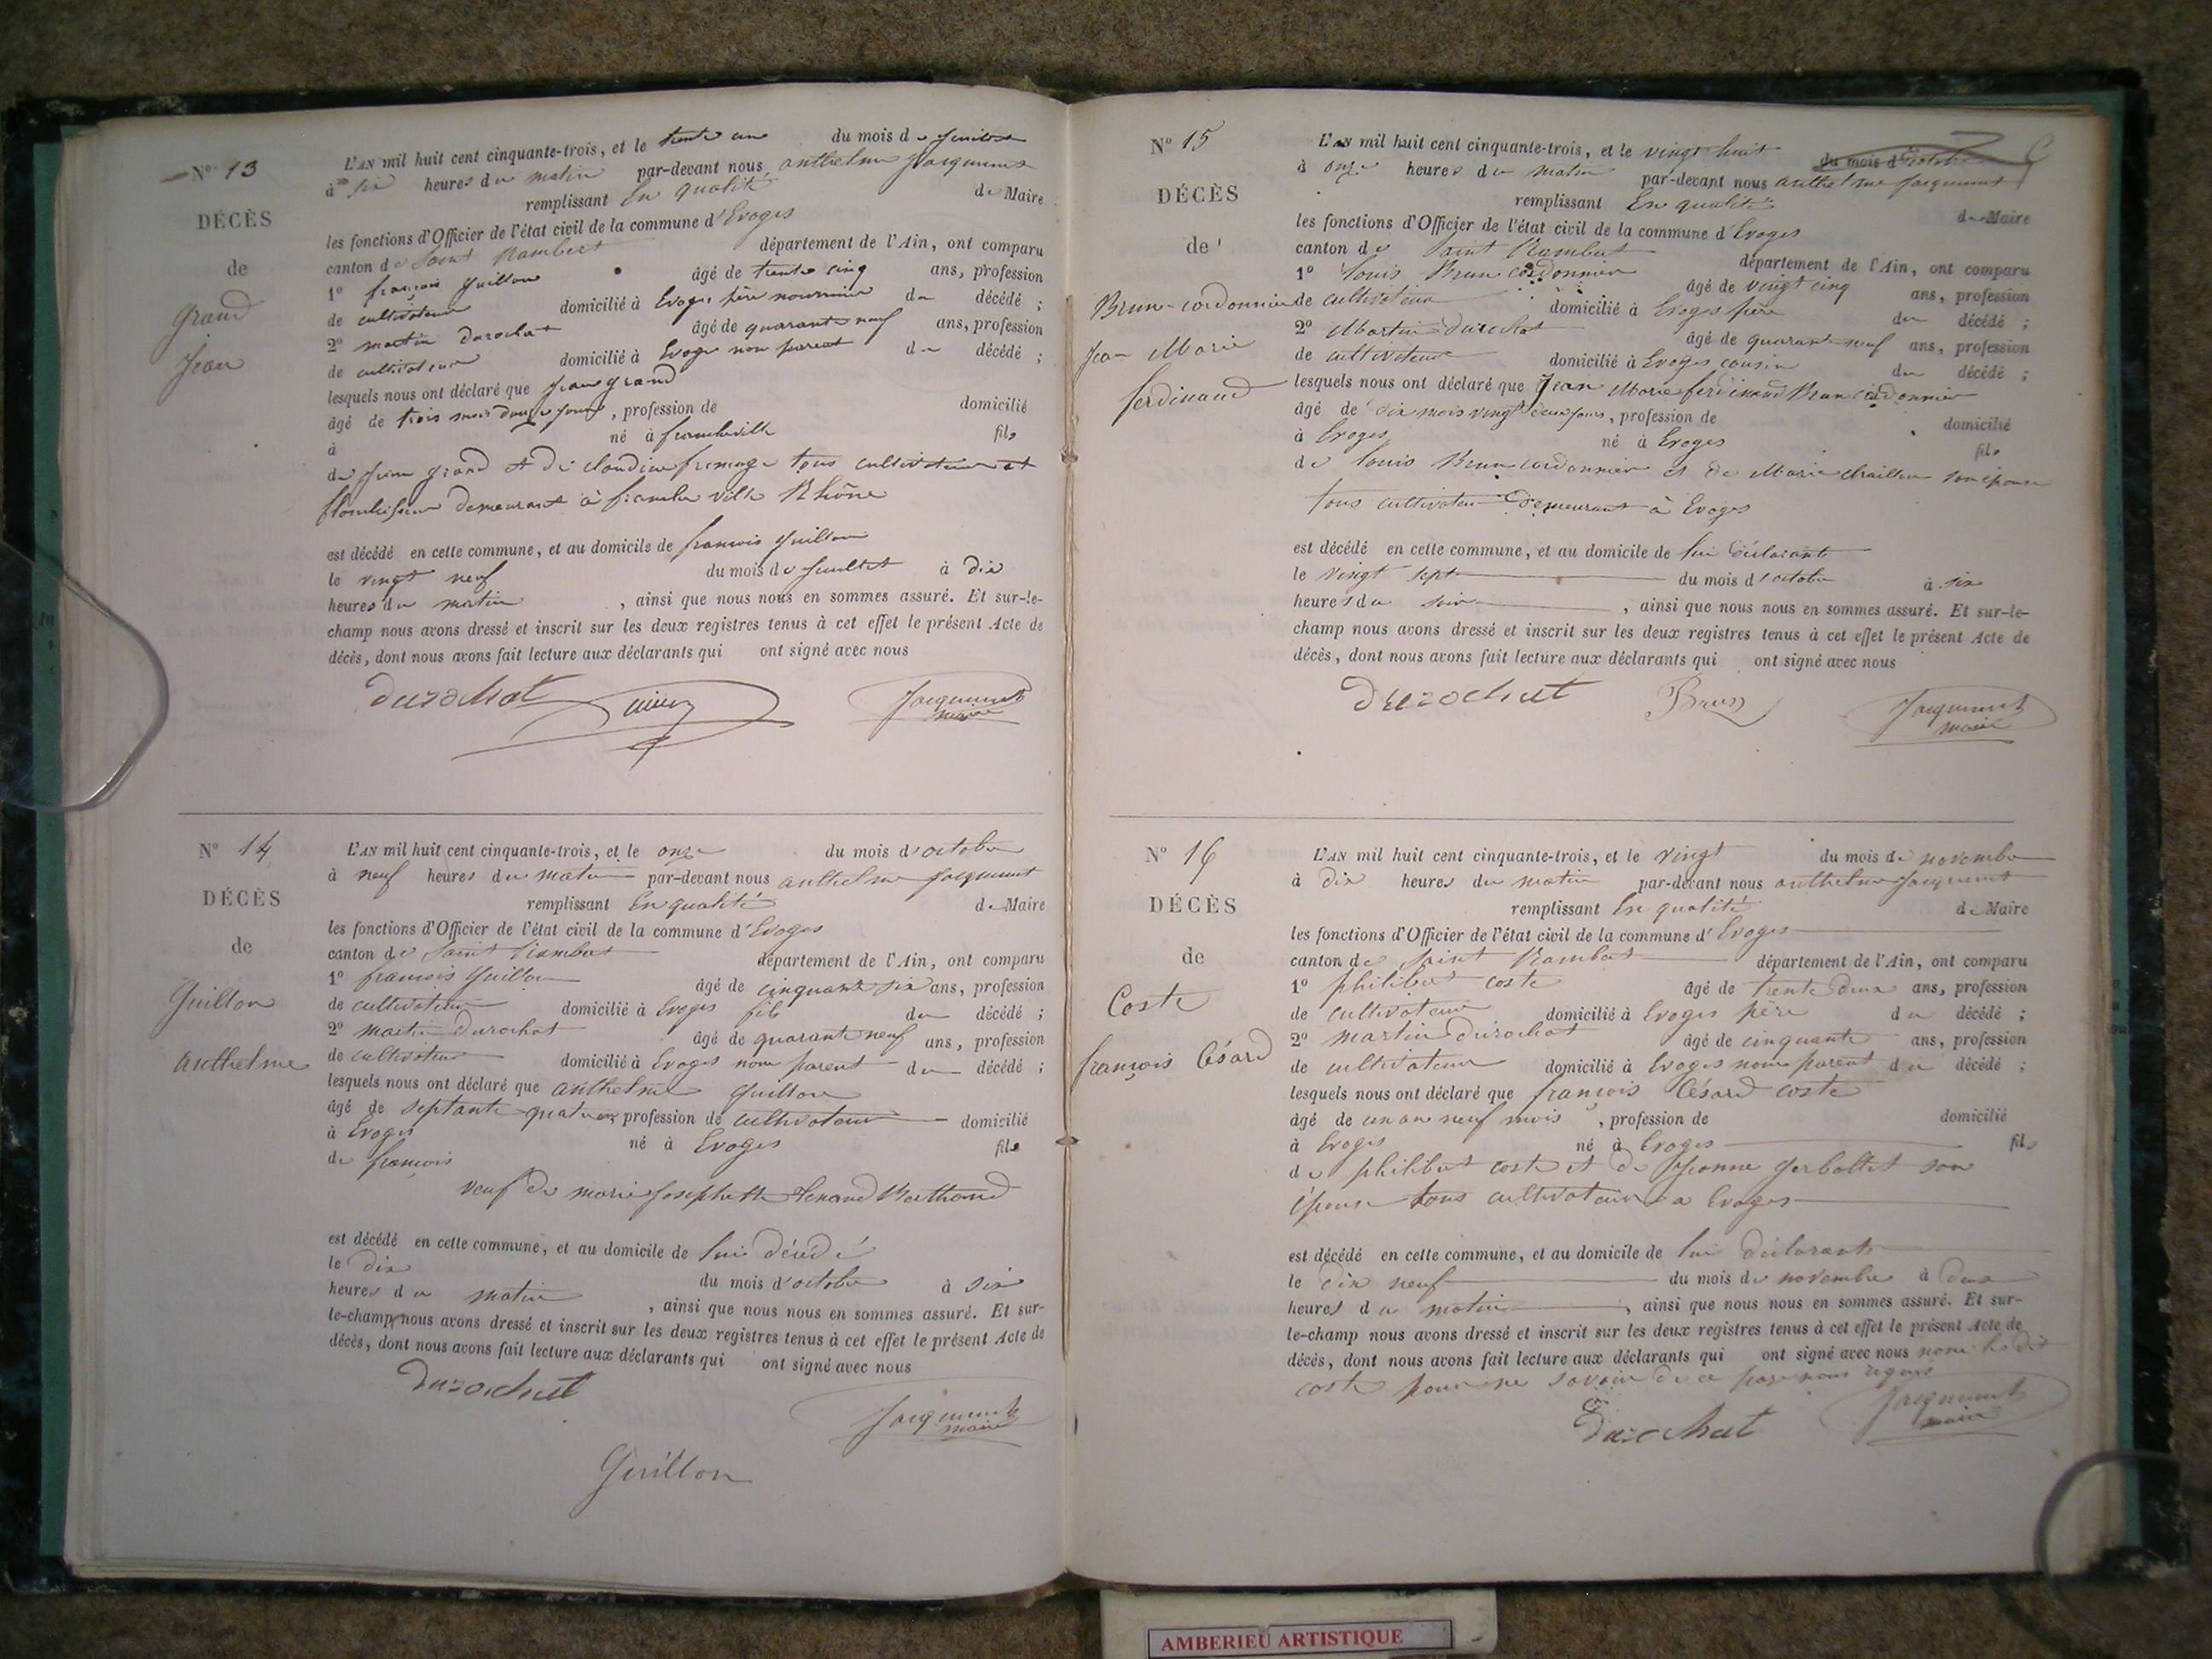 N° 13
DÉCÈS
de
Grand
Jean
L'AN mil huit cent cinquante-trois, et le trente un du mois de juillet
à dix heures du matin par-devant nous anthelme Jacquemet
remplissant En qualité de Maire
les fonctions d'Officier de l'état civil de la commune d'Evoges
canton de Saint Rambert département de l'Ain, ont comparu
1° françois Guillon âgé de trente cinq ans, profession
de cultivateur domicilié à Evoges père nourricier du décédé ;
2° martin durochat âgé de quarante neuf ans, profession
de cultivateur domicilié à Evoges non parent du décédé ;
lesquels nous ont déclaré que Jean grand
âgé de trois mois douze jours, profession de domicilié
à né à francheville fils
de Jean grand et de claudine tous cultivateur et
demeurant à francheville Rhône
est décédé en cette commune, et au domicile de francois Guillon
le vingt neuf du mois de Juillet à dix
heures du matin, ainsi que nous nous en sommes assuré. Et sur-le-
champ nous avons dressé et inscrit sur les deux registres tenus à cet effet le présent Acte de
décès, dont nous avons fait lecture aux déclarants qui ont signé avec nous
durochat Jacquemet
maire
N° 14
DÉCÈS
de
Guillon
anthelme
L'AN mil huit cent cinquante-trois, et le onze du mois d'octobre
à neuf heures du matin par-devant nous anthelme Jacquemet
remplissant En qualité de Maire
les fonctions d'Officier de l'état civil de la commune d'Evoges
canton de Saint Rambert département de l'Ain, ont comparu
1° francois Guillon âgé de cinquante six ans, profession
de cultivateur domicilié à Evoges fils du décédé ;
2° martin durochat âgé de quarante neuf ans, profession
de cultivateur domicilié à Evoges non parent du décédé ;
lesquels nous ont déclaré que anthelme Guillon
âgé de septante quatre profession de cultivateur domicilié
à Evoges né à Evoges fils
de françois
veuf de marie Josephette
est décédé en cette commune, et au domicile de lui décédé
le dix du mois d'octobre à six
heures du matin, ainsi que nous nous en sommes assuré. Et sur-
le-champ nous avons dressé et inscrit sur les deux registres tenus à cet effet le présent Acte de
décès, dont nous avons fait lecture aux déclarants qui ont signé avec nous
durochat Jacquemet
maire
Guillon
N° 15
DÉCÈS
de
Brun-cordonnier
Jean Marie
ferdinand
L'AN mil huit cent cinquante-trois, et le vingt huit du mois d'octobre
à onze heures du matin par-devant nous anthelme Jacquemet
remplissant En qualité de Maire
les fonctions d'Officier de l'état civil de la commune d'Evoges
canton de Saint Rambert département de l'Ain, ont comparu
1° Louis Brun cordonnier âgé de vingt cinq ans, profession
de cultivateur domicilié à Evoges père du décédé ;
2° Martin durochat âgé de quarante neuf ans, profession
de cultivateur domicilié à Evoges cousin du décédé ;
lesquels nous ont déclaré que Jean Marie ferdinand Brun cordonnier
âgé de dix mois vingt deux jours, profession de domicilié
à Evoges né à Evoges fils
de Louis Brun cordonnier et de Marie son épouse
tous cultivateur Demeurant à Evoges
est décédé en cette commune, et au domicile de lui déclarant
le vingt sept du mois d'octobre à six
heures du soir, ainsi que nous nous en sommes assuré. Et sur-le-
champ nous avons dressé et inscrit sur les deux registres tenus à cet effet le présent Acte de
décès, dont nous avons fait lecture aux déclarants qui ont signé avec nous
Durochat Brun Jacquemet
maire
N° 16
DÉCÈS
de
Coste
françois Césard
L'AN mil huit cent cinquante-trois, et le vingt du mois de novembre
à dix heures du matin par-devant nous anthelme Jacquemet
remplissant En qualité de Maire
les fonctions d'Officier de l'état civil de la commune d'Evoges
canton de Saint Rambert département de l'Ain, ont comparu
1° philibert coste âgé de trente deux ans, profession
de cultivateur domicilié à Evoges père du décédé ;
2° martin durochat âgé de cinquante ans, profession
de cultivateur domicilié à Evoges non parent du décédé ;
lesquels nous ont déclaré que françois Césard coste
âgé de un an neuf mois, profession de domicilié
à Evoges né à Evoges fils
de philibert coste et de son
épouse tous cultivateurs a Evoges
est décédé en cette commune, et au domicile de lui déclarant
le dix neuf du mois de novembre à deux
heures du matin, ainsi que nous nous en sommes assuré. Et sur-
le-champ nous avons dressé et inscrit sur les deux registres tenus à cet effet le présent Acte de
décès, dont nous avons fait lecture aux déclarants qui ont signé avec nous non le dit
coste pour ne savoir de ce par nous requis
Durochat Jacquemet
maire
AMBERIEU ARTISTIQUE